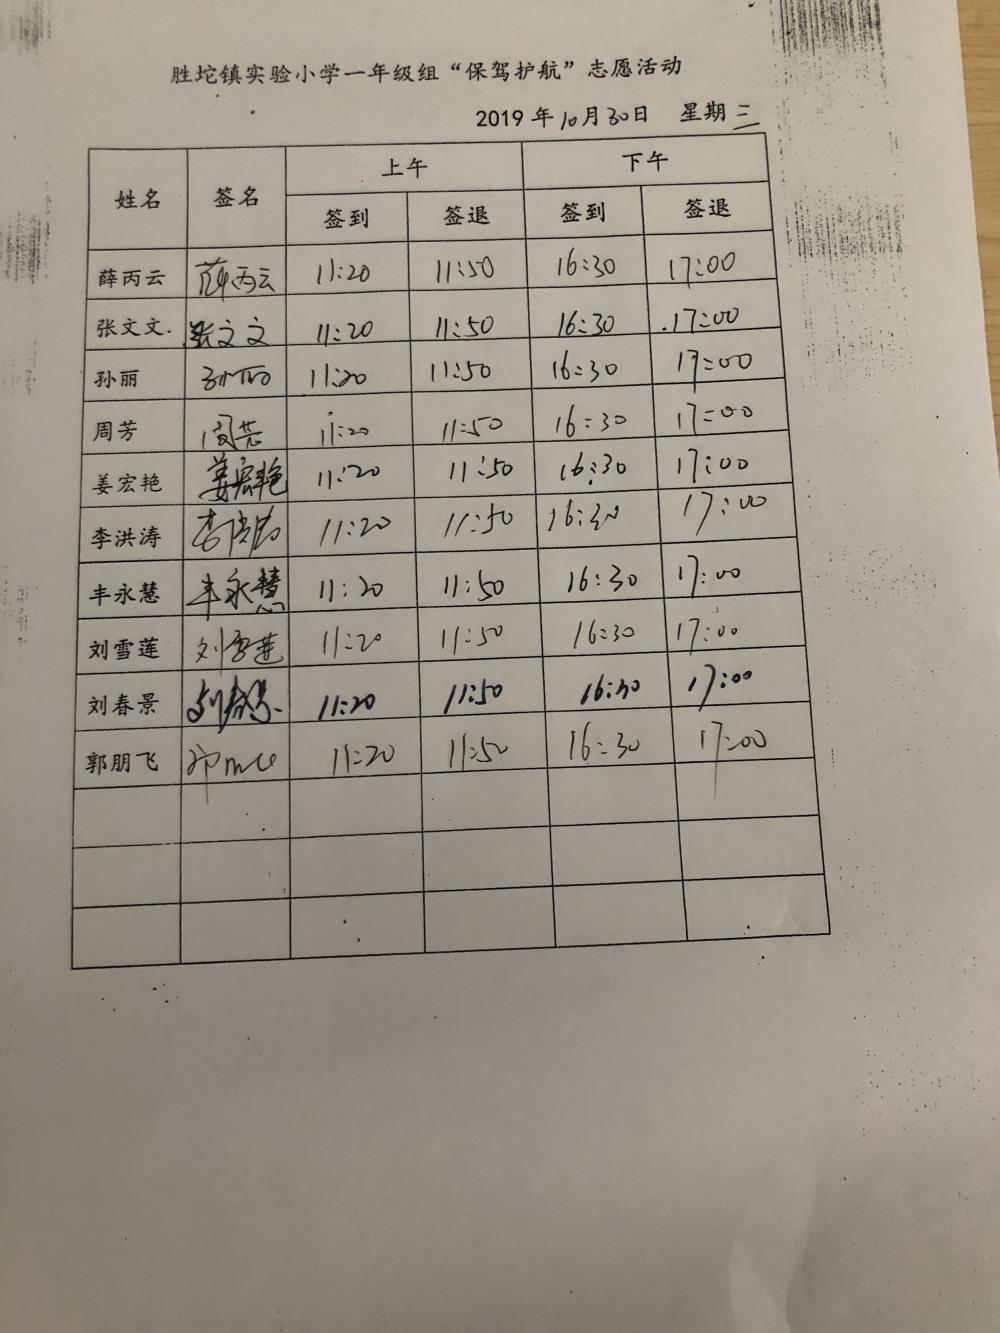 胜坨镇实验小学一年级组“保驾护航”志愿活动
2019 年 10月 30日 星期三
姓名 签名 上午 下午
签到 签退 签到 签退
薛丙云 薛丙云 11:20 11:50 16:30 17:00
张文文. 张文文 11:20 11:50 16:30 17:00
孙丽 孙丽 11:20 11:50 16:30 17:00
周芳 周芳 11:20 11:50 16:30 17:00
姜宏艳 姜宏艳 11:20 11:50 16:30 17:00
李洪涛 李洪涛 11:20 11:50 16:30 17:00
丰永慧 丰永慧 11:20 11:50 16:30 17:00
刘雪莲 刘雪莲 11:20 11:50 16:30 17:00
刘春景 刘春景 11:20 11:50 16:30 17:00
郭朋飞 11:20 11:50 16:30 17:00